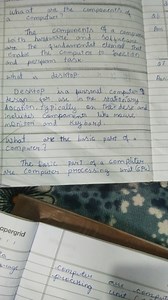 What are the components of
a computer
The components of a computer
both hardware and software
are the fundamental element that
enable the computer to function
and perform task.
What a desktop
Desktop is a personal computer
design for use in the stationary
location, typically on the desk and
includes components like mouse
monitor and keyboard.
What are the basic part of a
Computer?
The basic part of a computer
are computer processing unit (CPU)
computer are
processing unit (